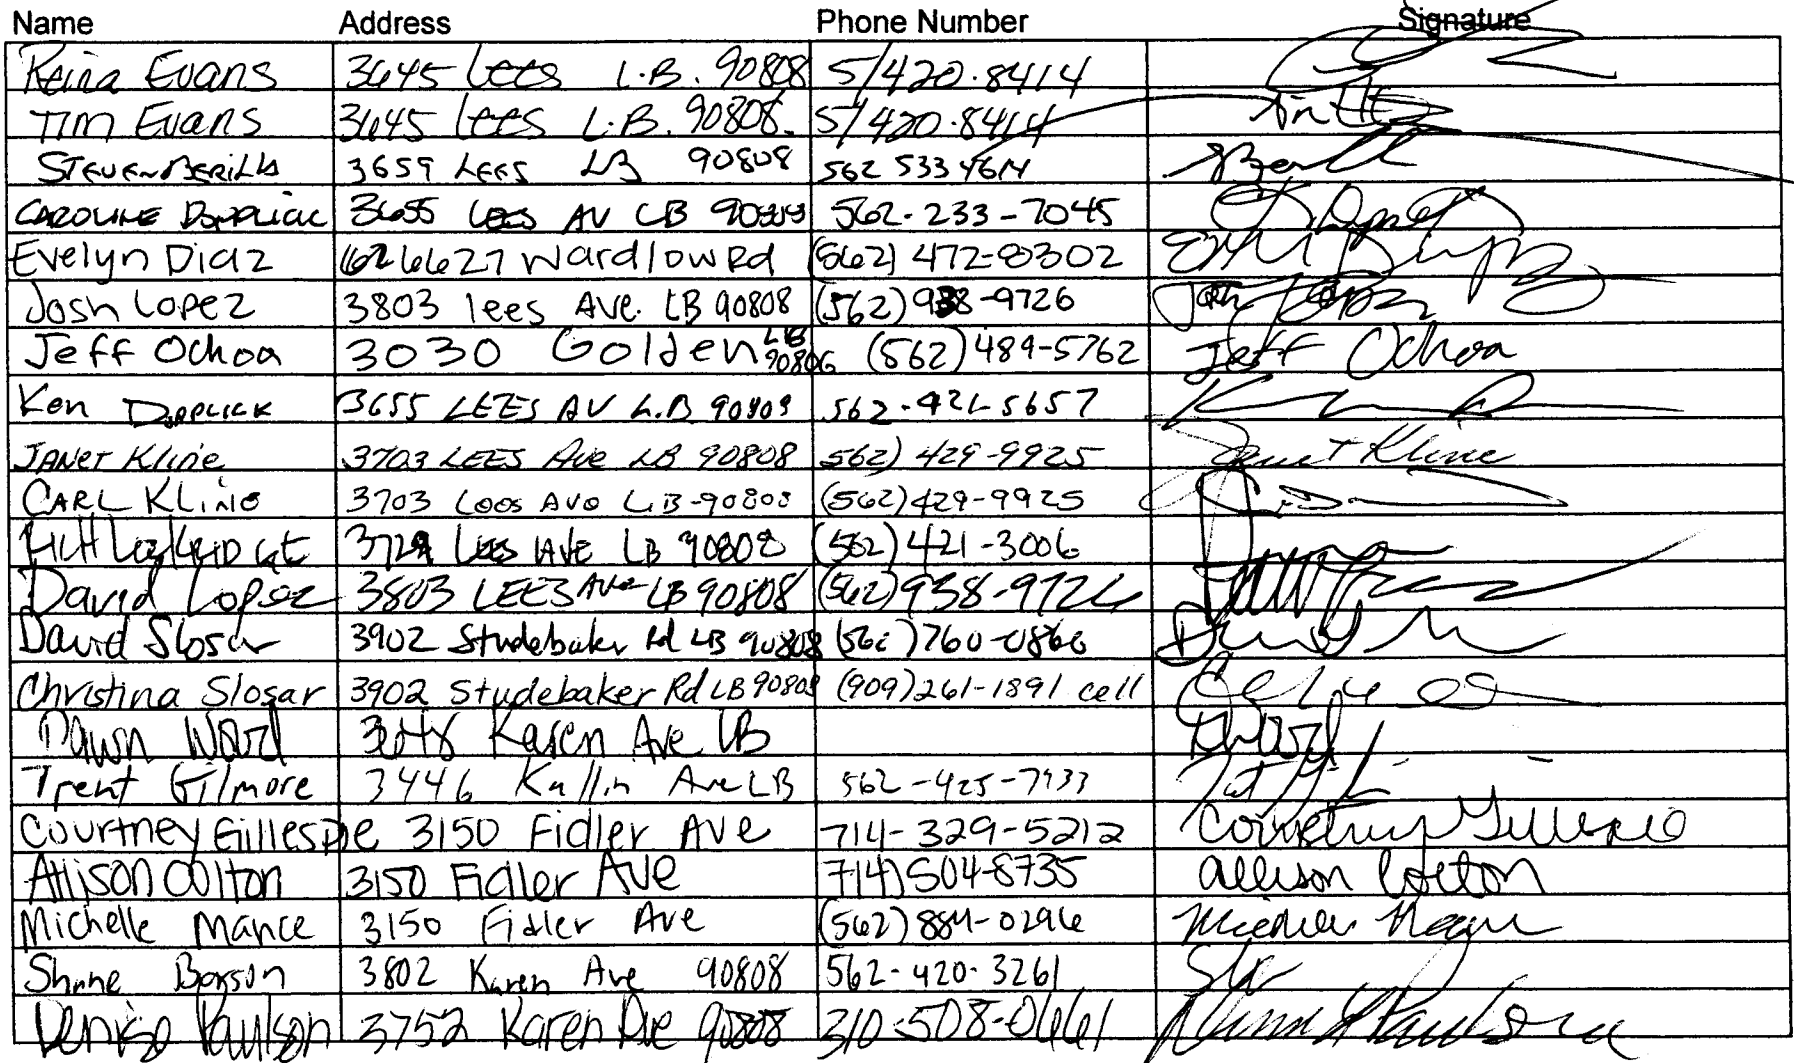 Name Address Phone Number Signature
Keina Evans 3645 Lees L.B. 90808 5/420.8414
Tim Evans 3645 Lees L.B. 90808. 5/420.8414
STEVEN BERILLA 3659 LEES LB 90808 562 533 4614
CAROLINE 3655 Lees AV LB 90808 562-233-7045
Evelyn Diaz 6627 Wardlow Rd (562) 472-8302
Josh Lopez 3803 lees Ave. LB 90808 (562) 938-9726 Josh Lopez
Jeff Ochoa 3030 Golden LB 90806 (562) 489-5762 Jeff Ochoa
Ken 3655 LEES AV L.B 90808 562-421-5657
JANET Kline 3703 LEES Ave LB 90808 562) 429-9925 Janet Kline
CARL KLINE 3703 Lees Ave L.B-90808 (562) 429-9925
LEES AVE LB 90808 (562) 421-3006
David Lopez 3803 LEES Ave LB 90808 (562) 938-9726
David Slosar 3902 Studebaker Rd LB 90808 (562) 760-0866
Christina Slosar 3902 Studebaker Rd LB 90808 (909) 261-1891 cell
Dawn Ward Karen Ave LB DWard
Trent Gilmore 3446 Kallin Ave LB 562-425-7933
Courtney Gillespie 3150 Fidler AVE 714-329-5212 Courtney Gillespie
Allison Colton 3150 Fidler AVE 714) 504-8735 Allison Colton
Michelle Mance 3150 Fidler Ave (562) 884-0296
Shane Borson 3802 Karen Ave 90808 562-420-3261
Denise Paulson 3752 Karen Ave 90808 310-508-0661 Denise Paulson